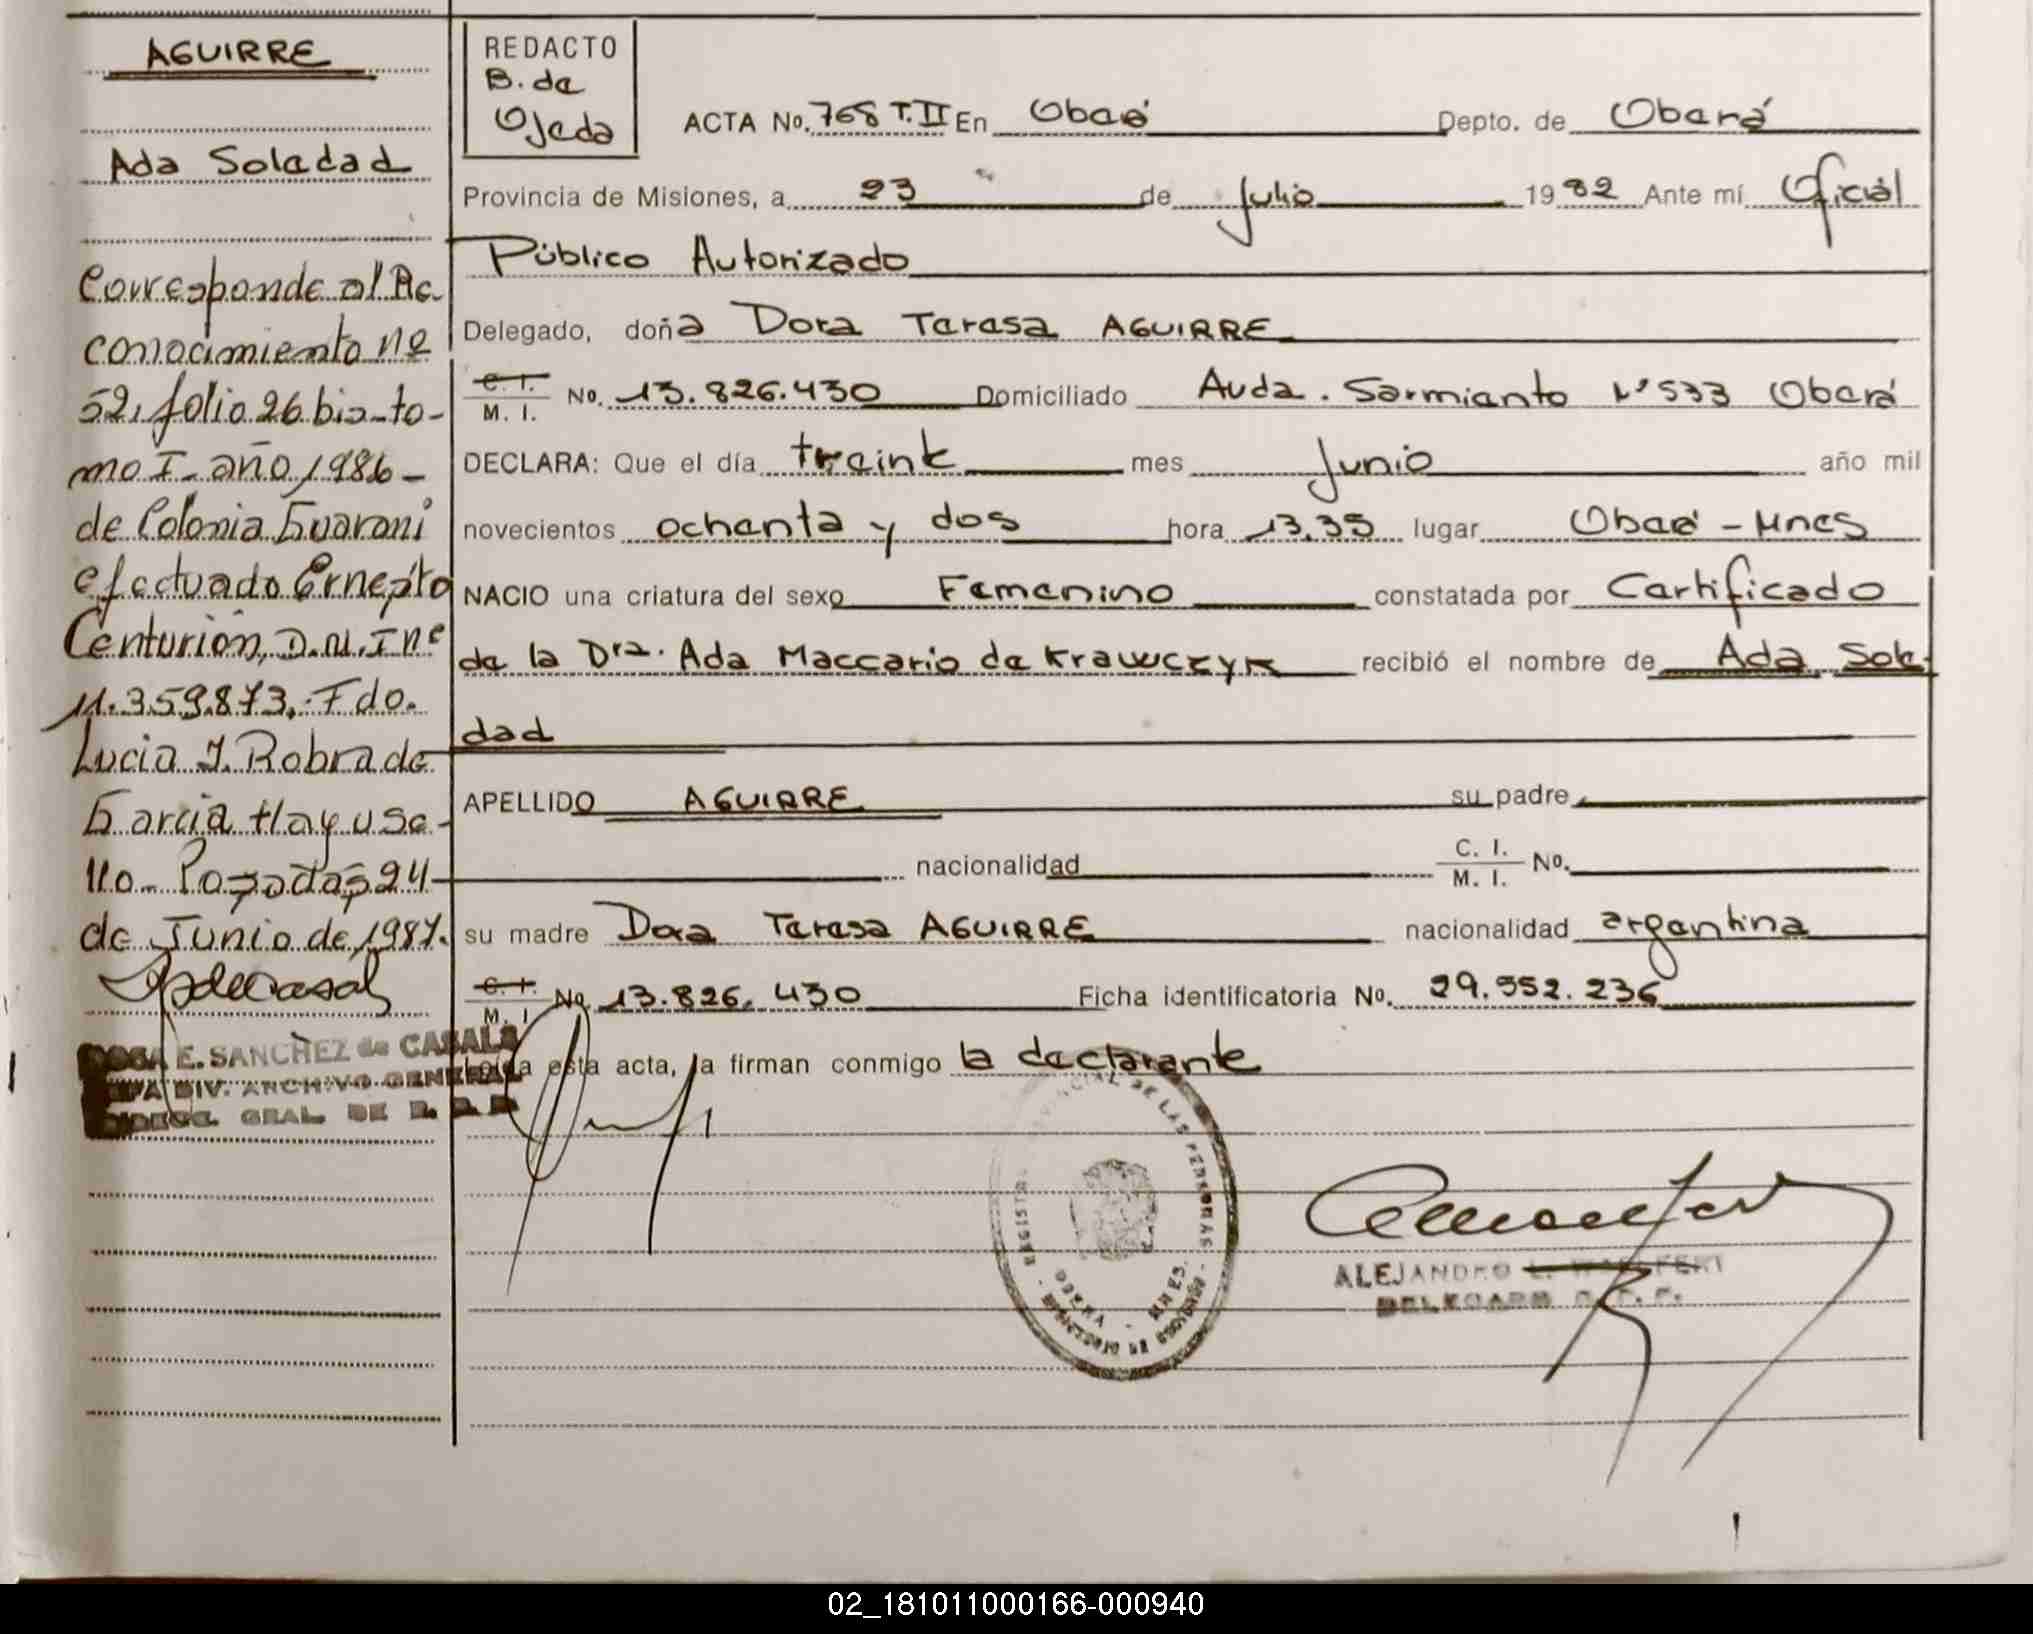 AGUIRRE
Ada Soledad
Corresponde al Re-
conocimiento nº
52, folio 26 bis-to-
mo I- año 1986-
de Colonia Guarani
efectuado Ernesto
Centurión, D.N.I nº
11.359.873,- Fdo.
Lucia J. Robra de
Garcia Hay u se-
llo- Posadas 24
de Junio de 1987.
ROSA E. SANCHEZ de CASALS
JEFA DIV. ARCHIVO GENERAL
DIRECC. GRAL. DE R. D. P.
REDACTO
B. de
Ojeda
ACTA No. 768 T.II En Oberá Depto. de Oberá
Provincia de Misiones, a 23 de Julio 1982 Ante mí Oficial
Público Autorizado
Delegado, doña Dora Teresa AGUIRRE
C. I. M. I. No. 13.826.430 Domiciliado Avda. Sarmiento Nº 533 Oberá
DECLARA: Que el día treinta mes Junio año mil
novecientos ochenta y dos hora 13,35 lugar Oberá - Mnes
NACIO una criatura del sexo Femenino constatada por Certificado
de la Dra. Ada Maccario de Krawczyk recibió el nombre de Ada Sole-
dad
APELLIDO AGUIRRE su padre
nacionalidad C. I. M. I. No.
su madre Dora Teresa AGUIRRE nacionalidad argentina
C. I. M. I. No. 13.826.430 Ficha identificatoria No. 29.552.236
Leída esta acta, la firman conmigo la declarante
REGISTRO PROVINCIAL DE LAS PERSONAS
OBERA - MNES.
ALEJANDRO
02_181011000166-000940